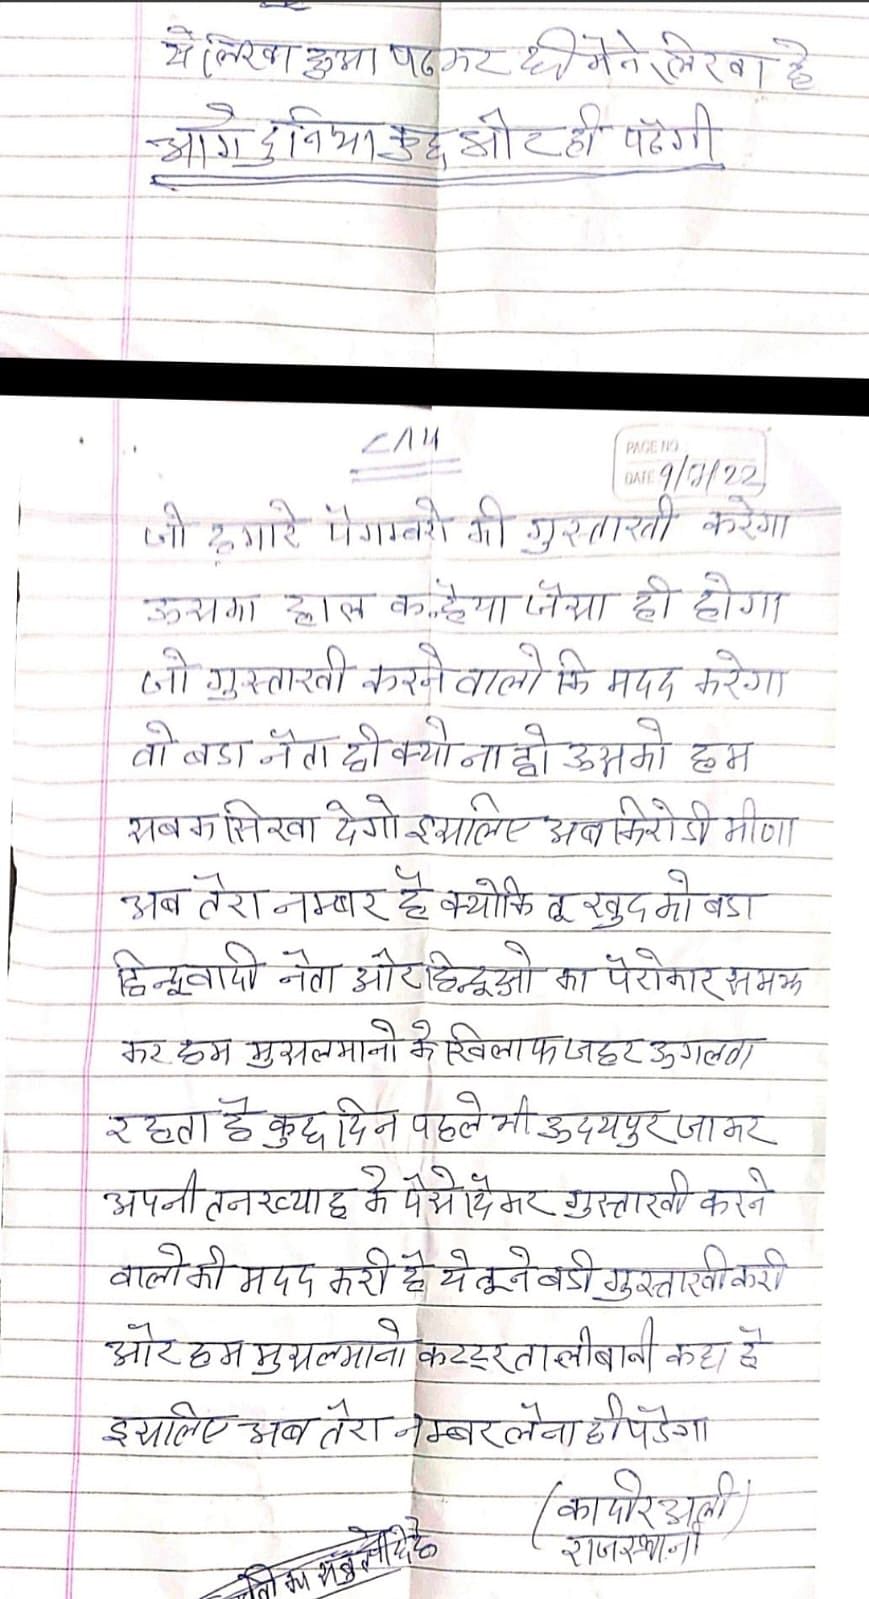 ये लिखा हुआ पढकर ही मैने लिखा है
आगे दुनिया कुछ और ही पढेगी
PAGE NO
DATE 9/7/22
जो हमारे पैगम्बरो की गुस्ताखी करेगा
ऊसका हाल कन्हैया जैसा ही होगा
जो गुस्ताखी करने वालो कि मदद करेगा
वो बडा नैता ही क्यो ना हो ऊसको हम
सबक सिखा देगो इसलिए अब किरोडी मीणा
अब तेरा नम्बर है क्योकि तू खुद को बडा
हिन्दूवादी नैता और हिन्दूओ का पैरोकार समझ
कर हम मुसलमानो के खिलाफ जहर ऊगलता
रहता है कुछ दिन पहले भी ऊदयपुर जाकर
अपनी तनख्याह के पैसे देकर गुस्ताखी करने
वालो की मदद करी है ये तूने बडी गुस्ताखी करी
और हम मुसलमानो कटटर तालीबानी कहा है
इसलिए अब तेरा नम्बर लेना ही पडेगा
(कादीर अली)
राजस्थानी